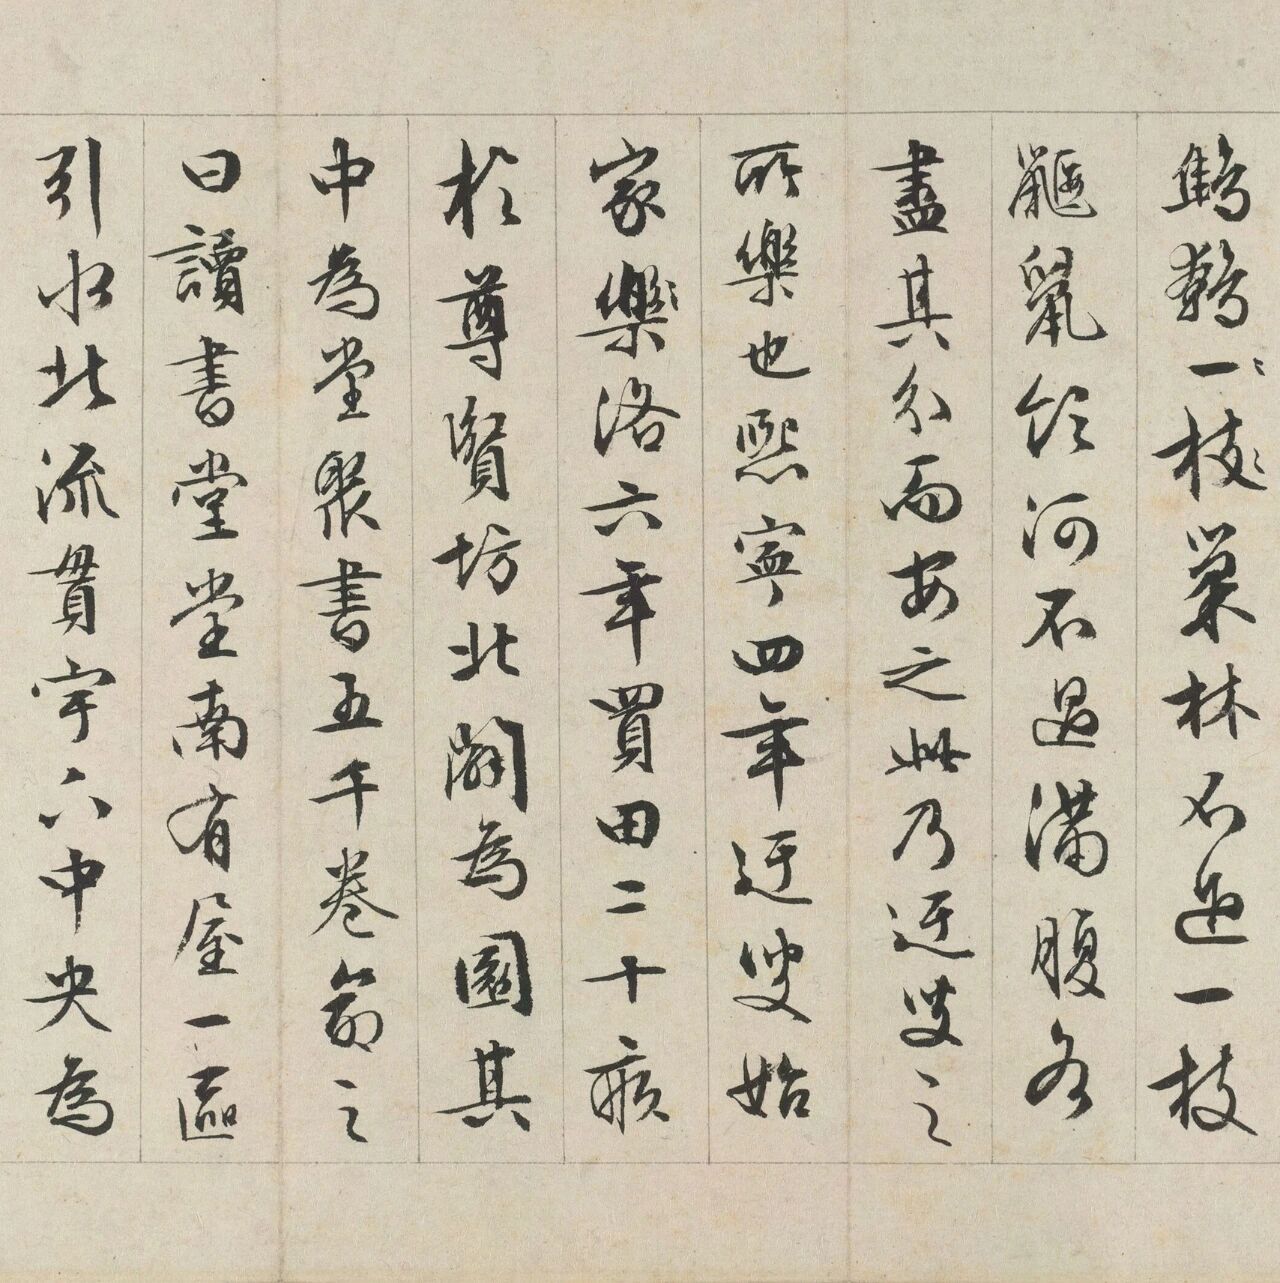 鷦鷯一枝巢林不過一枝
鼴鼠飲河不過滿腹各
盡其分而安之此乃迂叟之
所樂也熙寧四年迂叟始
家樂洛六年買田二十畝
於尊賢坊北闢為園其
中為堂聚書五千卷命之
曰讀書堂堂南有屋一區
引水北流貫宇下中央為